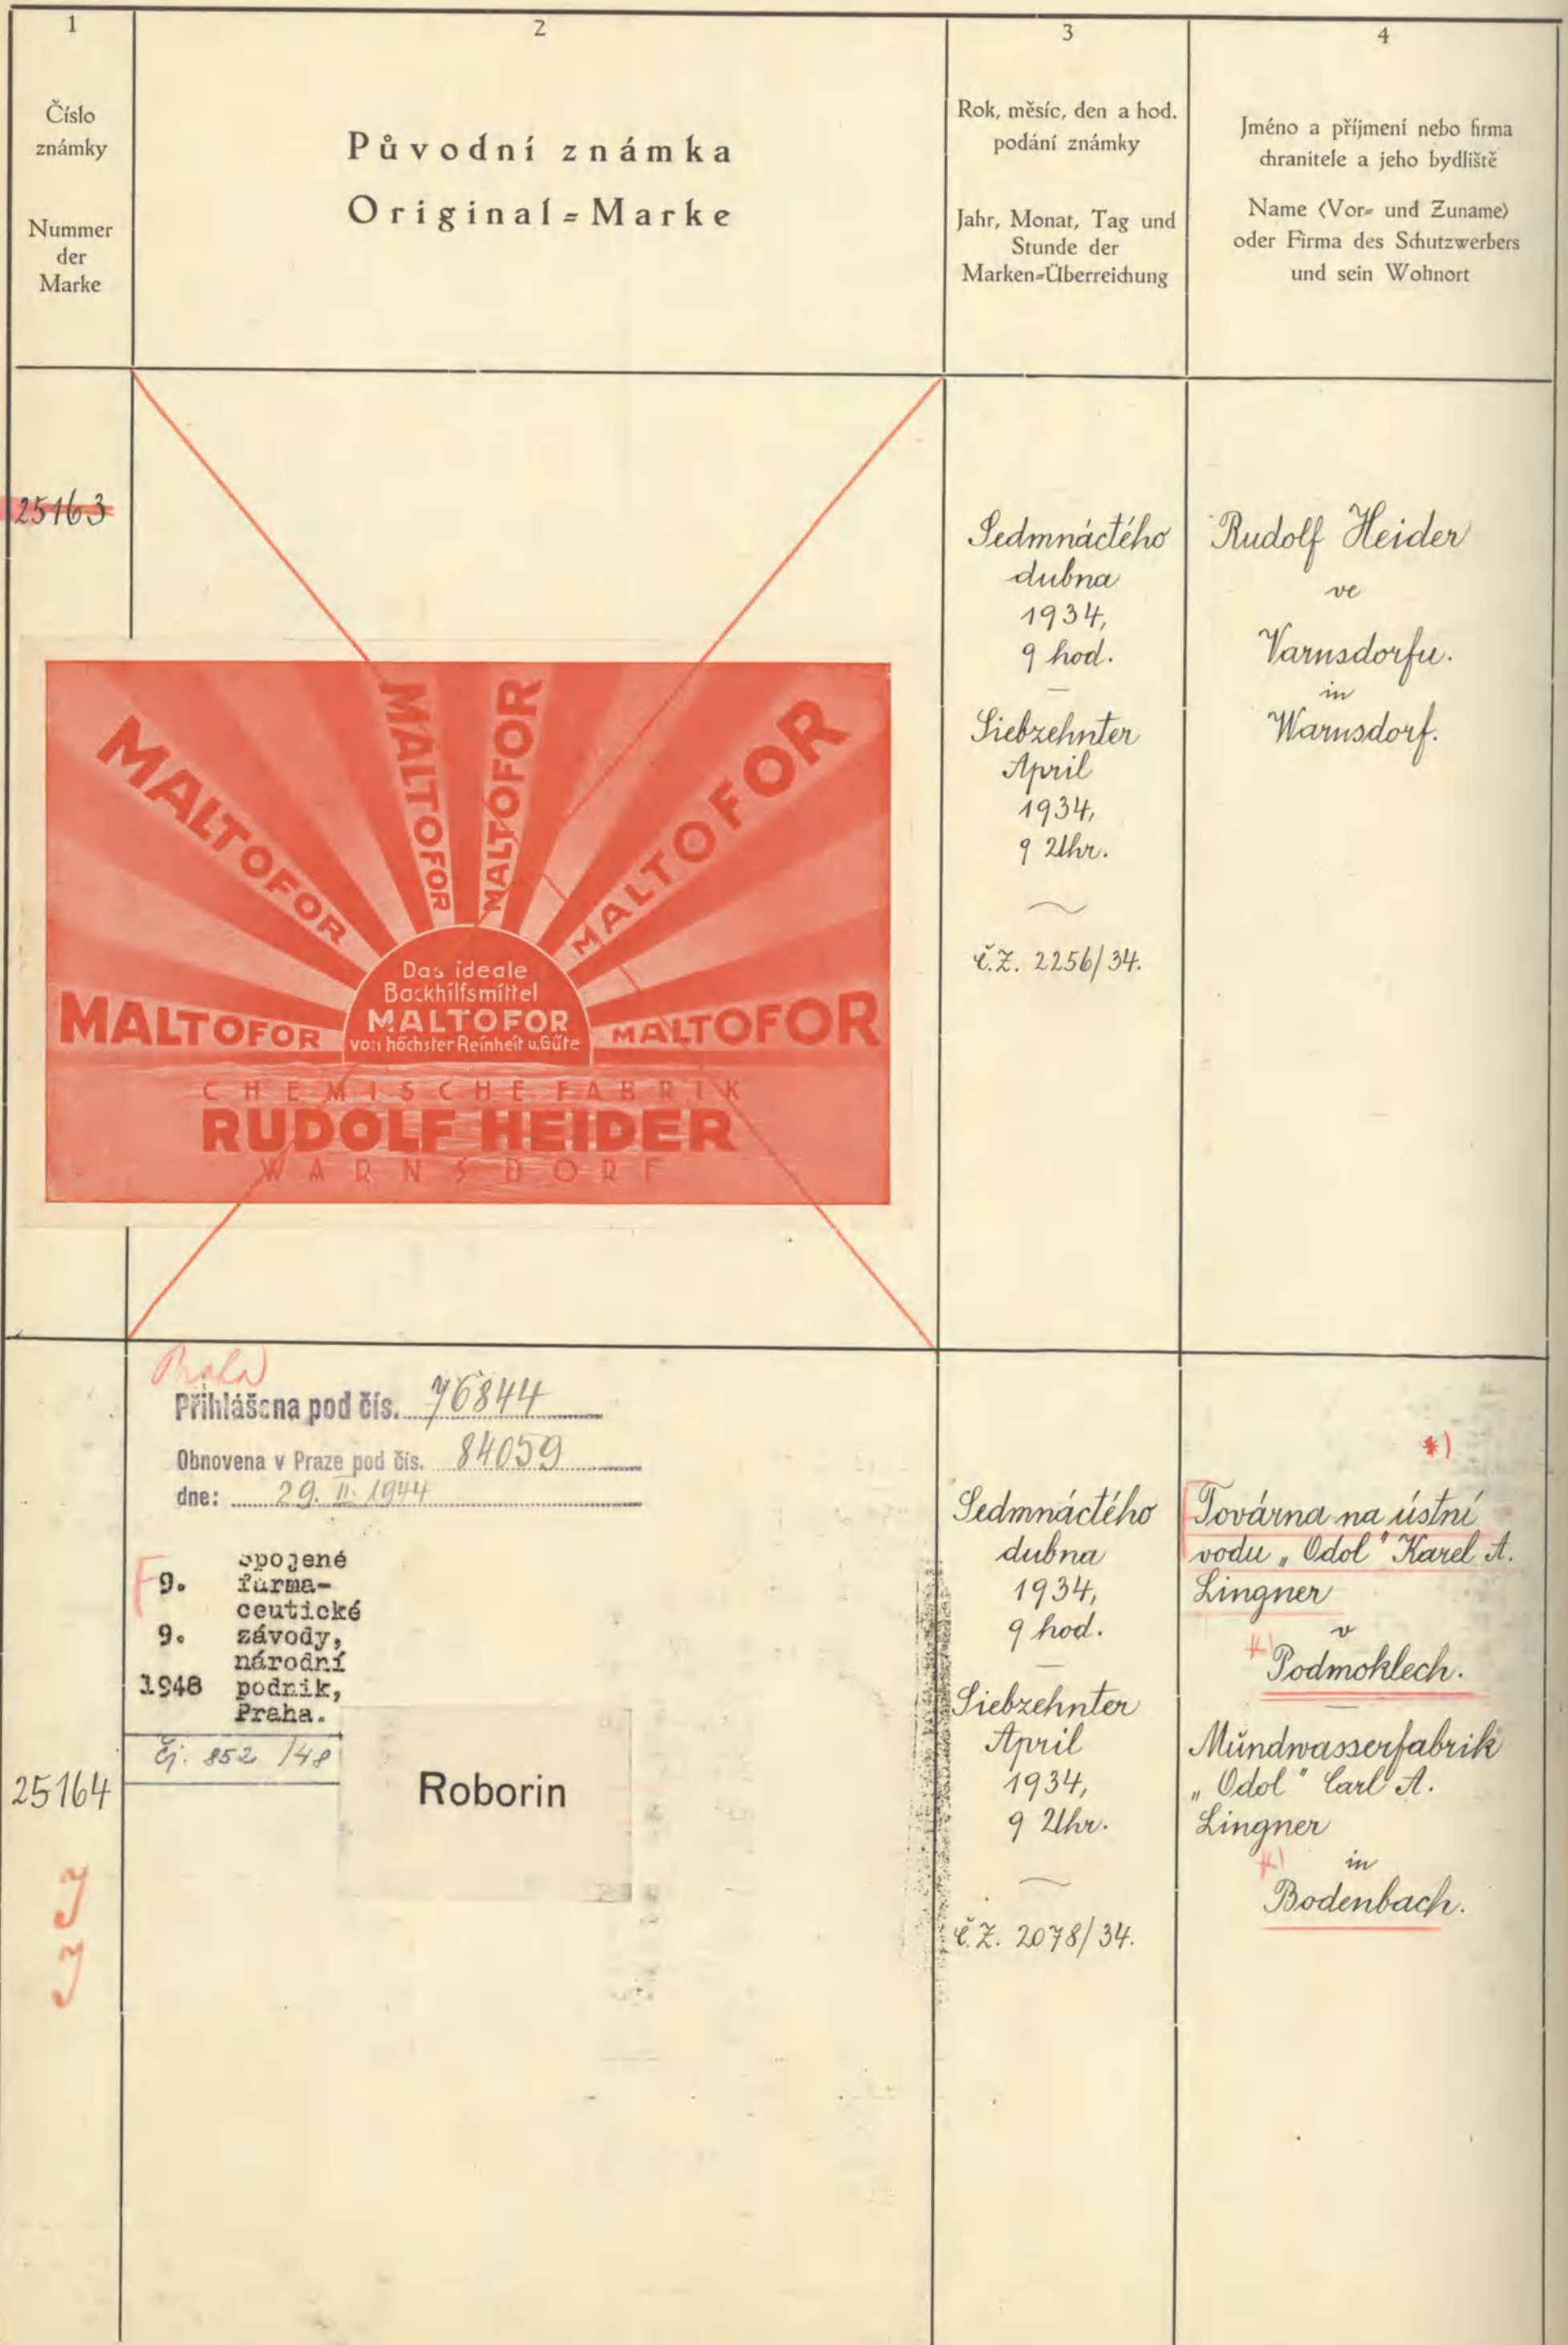 1
Číslo
známky
Nummer
der
Marke
2
Původní známka
Original=Marke
3
Rok, měsíc, den a hod.
podání známky
Jahr, Monat, Tag und
Stunde der
Marken=Überreichung
4
Jméno a příjmení nebo firma
chranitele a jeho bydliště
Name (Vor= und Zuname)
oder Firma des Schutzwerbers
und sein Wohnort
25163
MALTOFOR
MALTOFOR
MALTOFOR
MALTOFOR
MALTOFOR
MALTOFOR
Das ideale
Backhilfsmittel
MALTOFOR
von höchster Reinheit u. Güte
CHEMISCHE FABRIK
RUDOLF HEIDER
WARNSDORF
Sedmnáctého
dubna
1934,
9 hod.
Siebzehnter
April
1934,
9 Uhr.
č.Z. 2256/34.
Rudolf Heider
ve
Varnsdorfu.
in
Warnsdorf.
25164
Praha
Přihlášena pod čís. 76844
Obnovena v Praze pod čís. 84059
dne: 29. II. 1944
9.
9.
1948
spojené
farma-
ceutické
závody,
národní
podnik,
Praha.
Čj. 852 /48
Roborin
Sedmnáctého
dubna
1934,
9 hod.
Siebzehnter
April
1934,
9 Uhr.
č.Z. 2078/34.
*)
Továrna na ústní
vodu „Odol" Karel A.
Lingner
v
*) Podmoklech.
Mundwasserfabrik
„Odol" Carl A.
Lingner
*) in
Bodenbach.